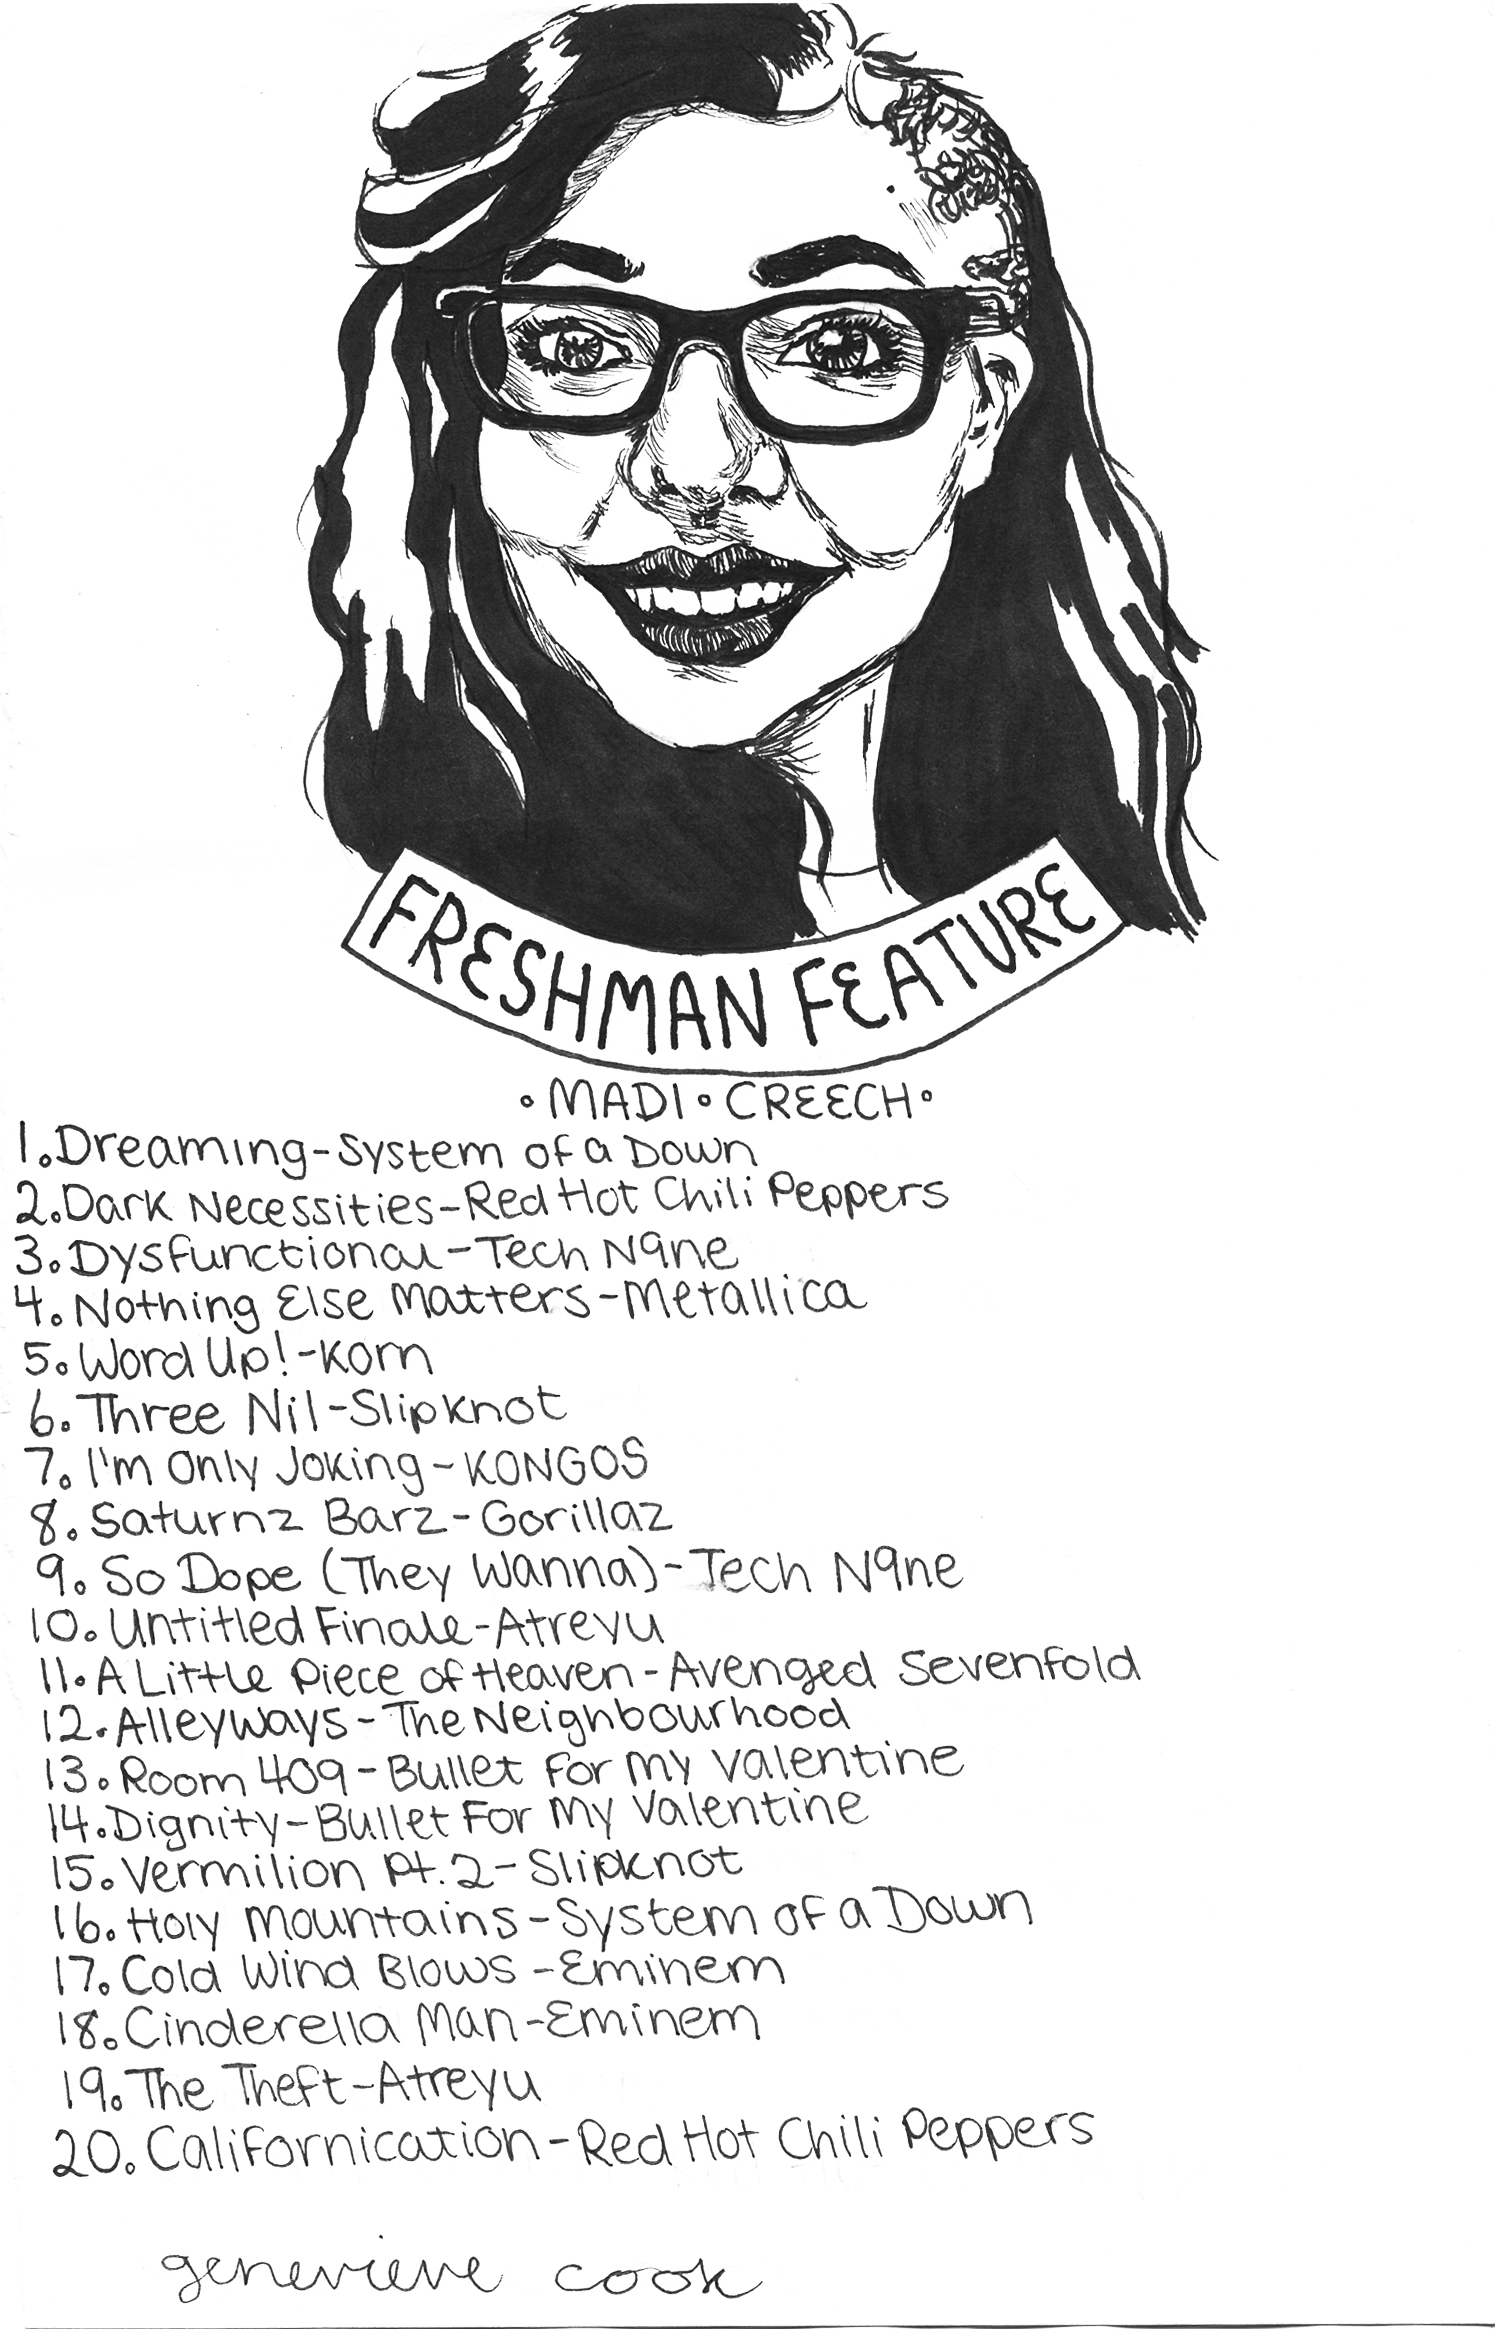 FRESHMAN FEATURE
• MADI • CREECH •
1. Dreaming-System of a Down
2. Dark Necessities-Red Hot Chili Peppers
3. Dysfunctional-Tech N9ne
4. Nothing Else Matters-Metallica
5. Word Up!-Korn
6. Three Nil-Slipknot
7. I'm Only Joking-KONGOS
8. Saturnz Barz-Gorillaz
9. So Dope (They Wanna)-Tech N9ne
10. Untitled Finale-Atreyu
11. A Little Piece of Heaven-Avenged Sevenfold
12. Alleyways-The Neighbourhood
13. Room 409-Bullet For My Valentine
14. Dignity-Bullet For My Valentine
15. Vermilion Pt. 2-Slipknot
16. Holy Mountains-System of a Down
17. Cold Wind Blows-Eminem
18. Cinderella Man-Eminem
19. The Theft-Atreyu
20. Californication-Red Hot Chili Peppers
genevieve cook